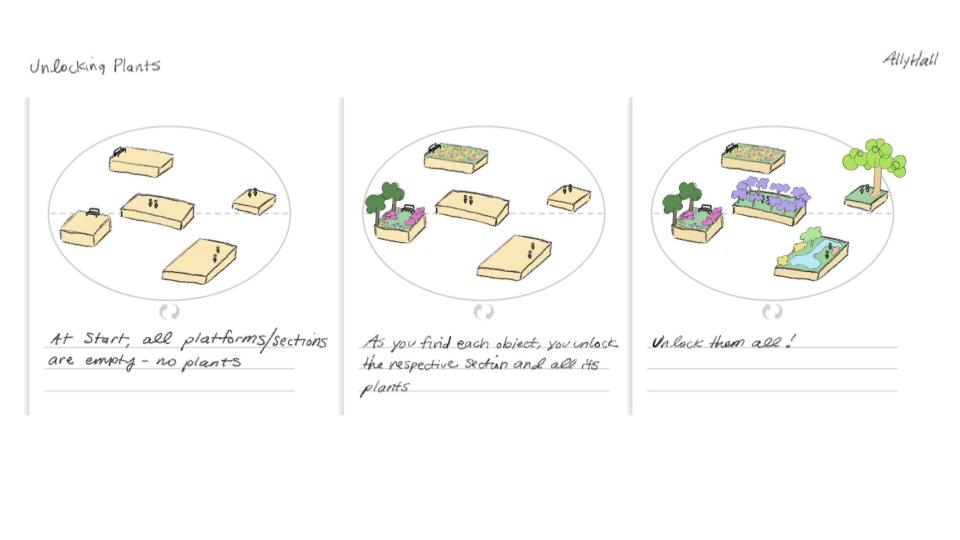 Unlocking Plants
AllyHall
At Start, all platforms/sections
are empty - no plants
As you find each object, you unlock
the respective section and all its
plants
Unlock them all!